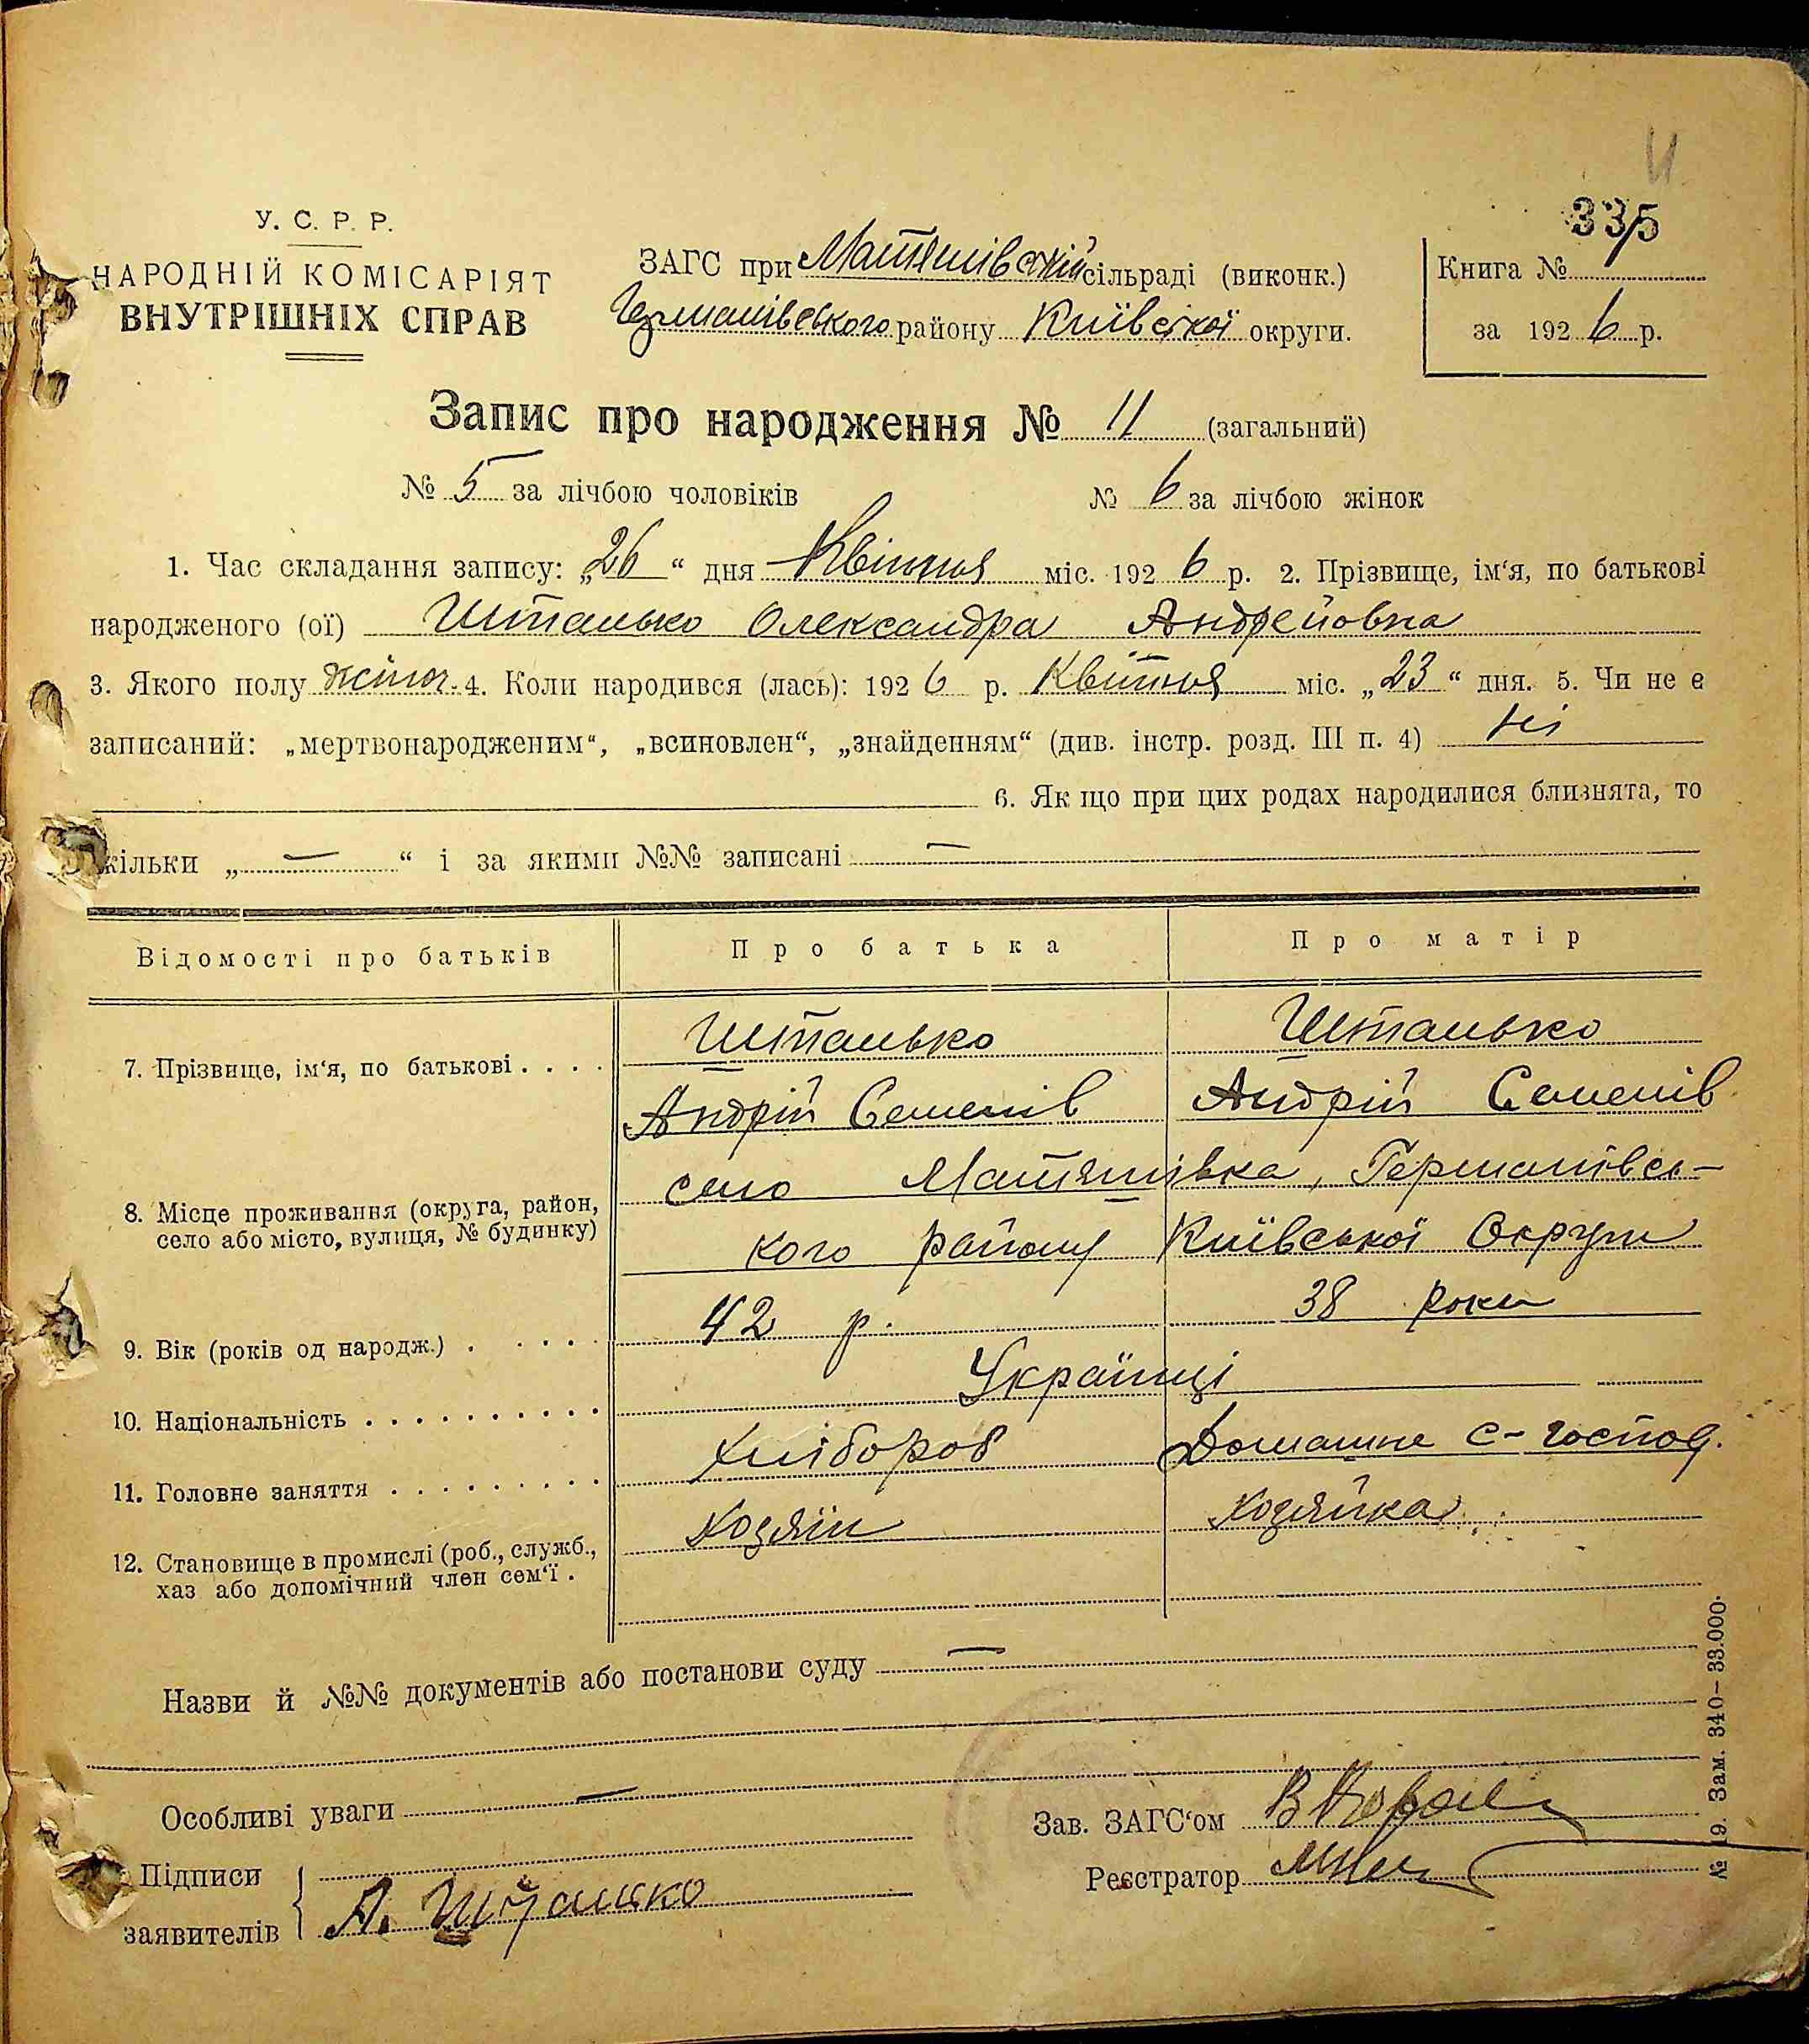 И
335
У. С. Р. Р.
НАРОДНІЙ КОМІСАРІЯТ
ВНУТРІШНІХ СПРАВ
ЗАГС при Матяшівскій сільраді (виконк.)
Германівського району Київської округи.
Книга №
за 1926 р.
Запис про народження № 11 (загальний)
№ 5 за лічбою чоловіків № 6 за лічбою жінок
1. Час складання запису: „26“ дня Квітня міс. 1926 р. 2. Прізвище, ім‘я, по батькові
народженого (ої) Штанько Олександра Андрейовна
3. Якого полу жіноч. 4. Коли народився (лась): 1926 р. Квітня міс. „23“ дня. 5. Чи не є
записаний: „мертвонародженим“, „всиновлен“, „знайденням“ (див. інстр. розд. III п. 4) ні
6. Як що при цих родах народилися близнята, то
кільки „ — “ і за якими №№ записані —
Відомості про батьків Про батька Про матір
7. Прізвище, ім‘я, по батькові . . . . Штанько Штанько
Андрій Семенів Андрій Семенів
8. Місце проживання (округа, район,
село або місто, вулиця, № будинку)
село Матяшівка, Германівсь-
кого району Київської Округи
9. Вік (років од народж.) . . . . . 42 р. 38 роки
10. Національність . . . . . . . . . . Українці
11. Головне заняття . . . . . . . . . Хлібороб Домашне с-господ.
12. Становище в промислі (роб., служб.,
хаз або допомічний член сем‘ї .
Хозяїн Хозяйка
Назви й №№ документів або постанови суду —
Особливі уваги —
Зав. ЗАГС‘ом
Реєстратор
Підписи
заявителів
А. Штанько
№ 19. Зам. 340—33.000.